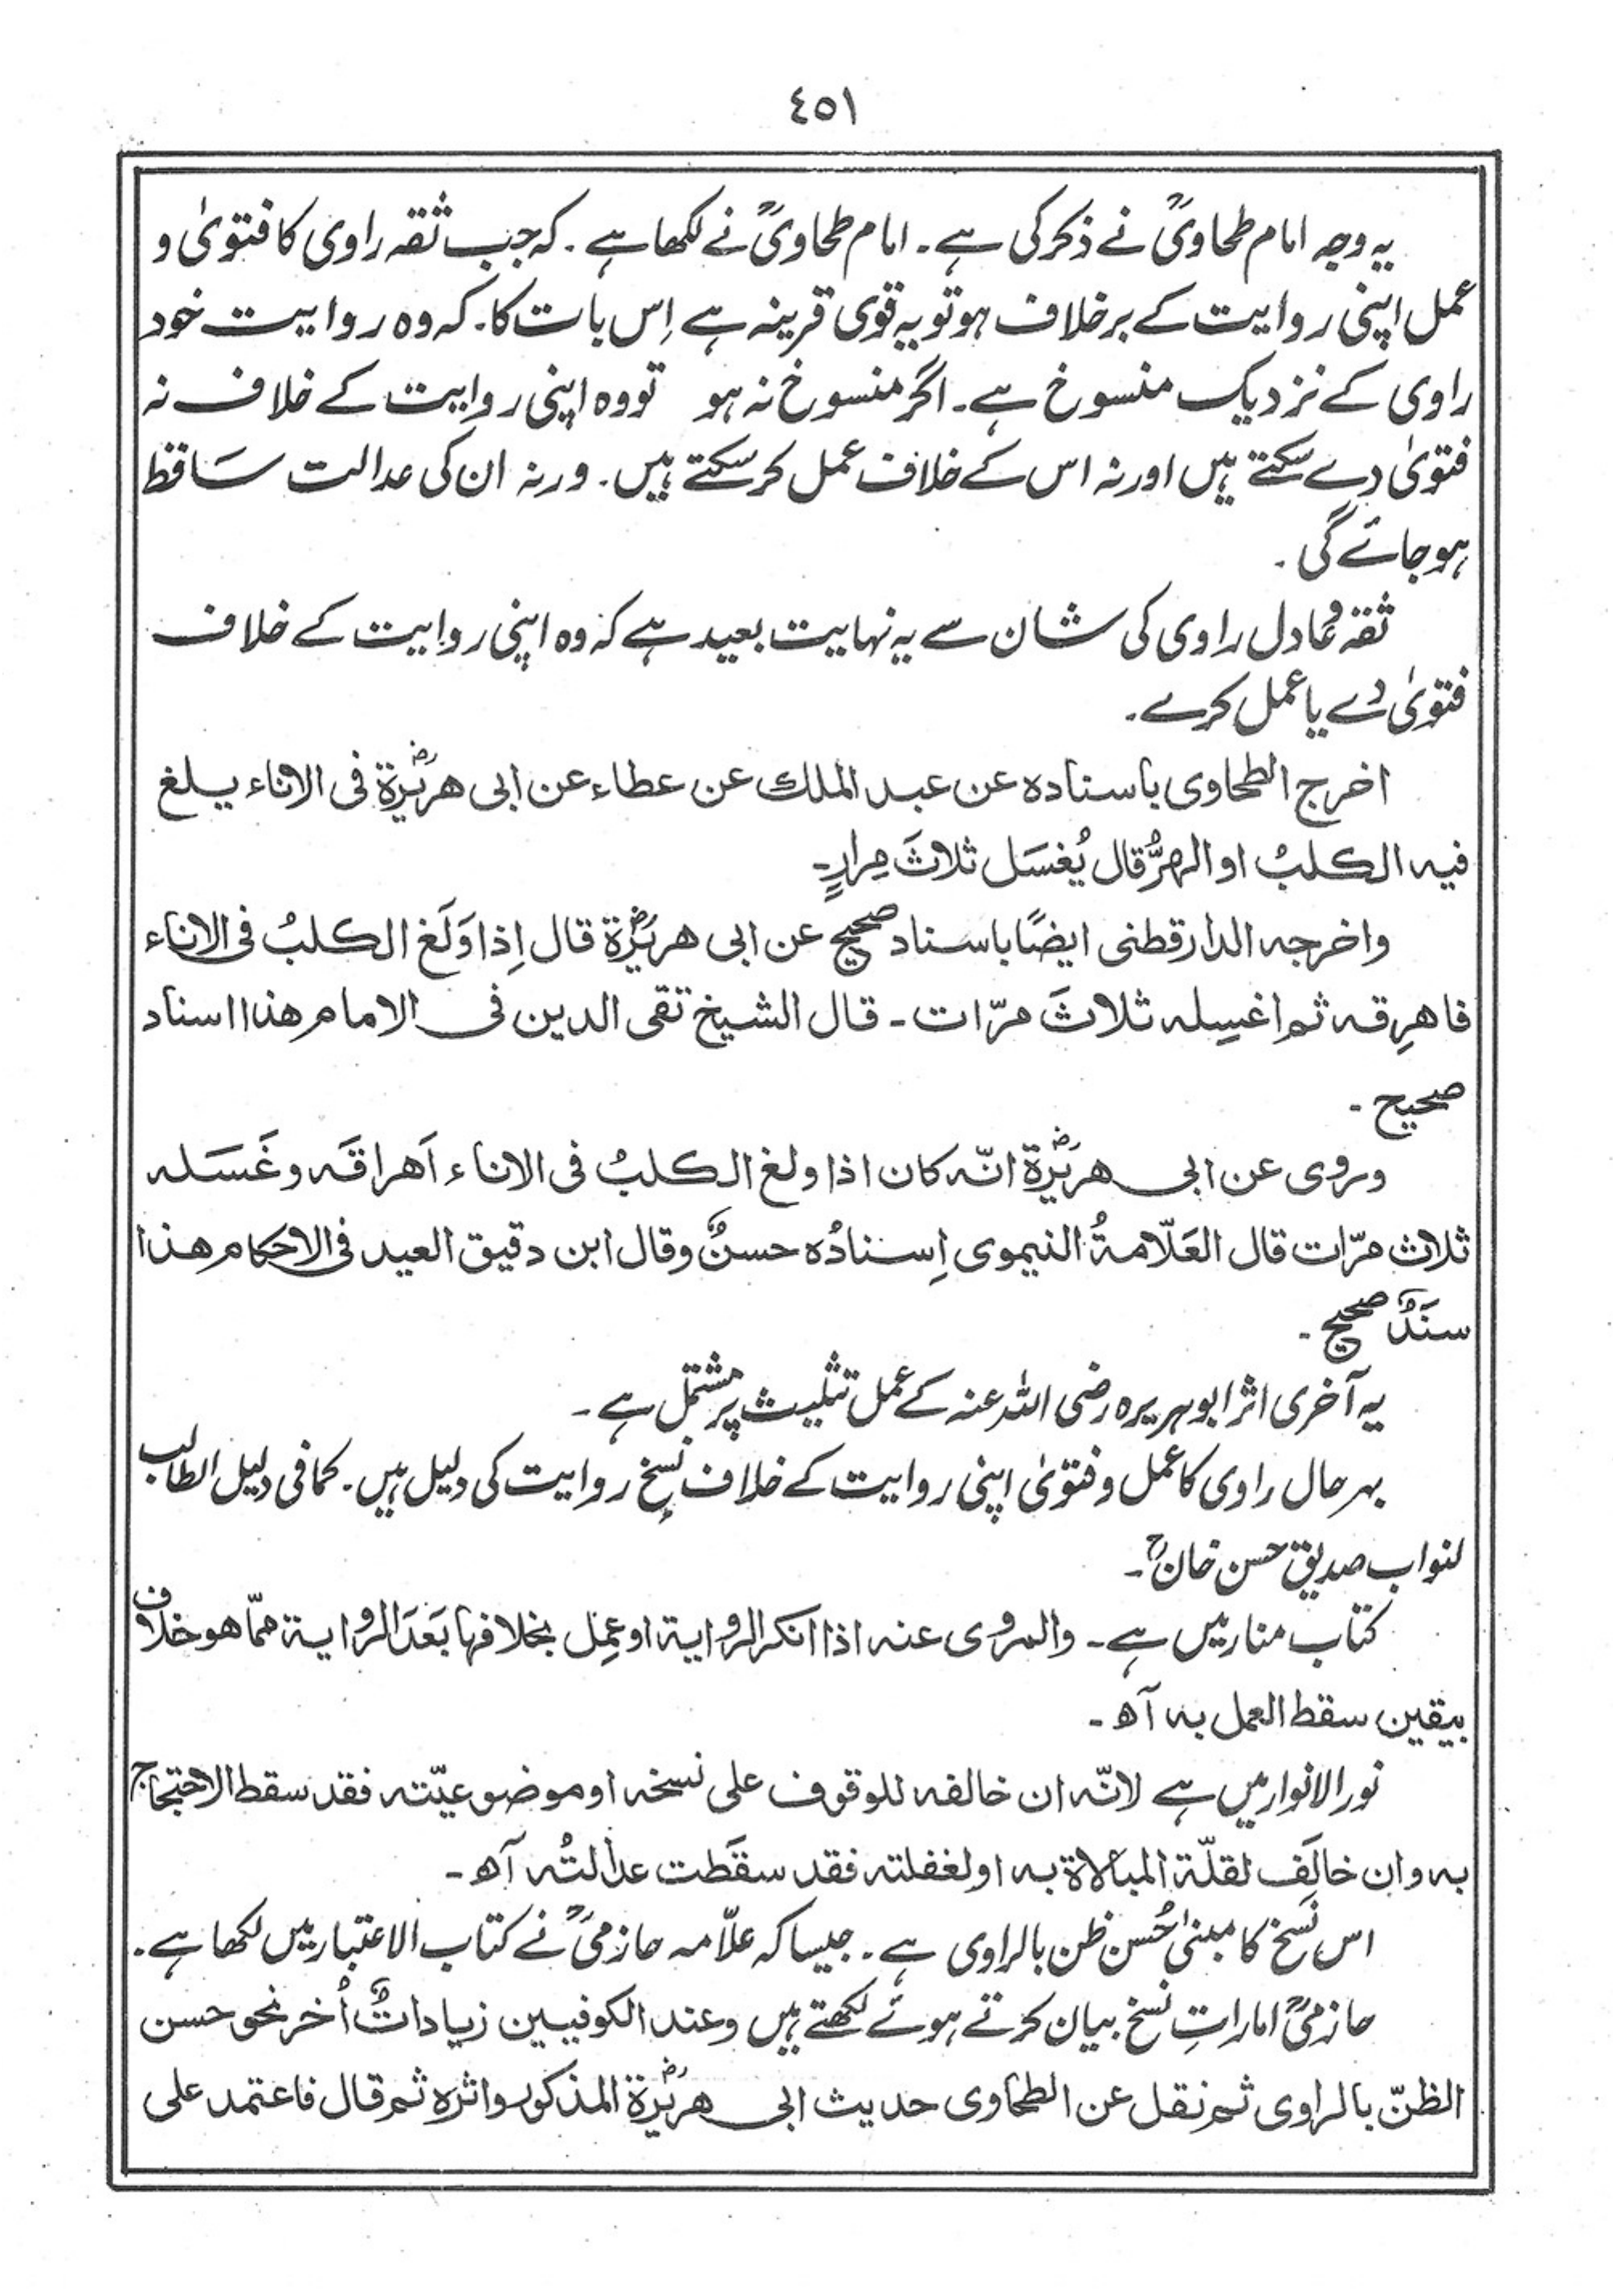 ٤٥١
یہ وجہ امام طحاویؒ نے ذکر کی ہے۔ امام طحاویؒ نے لکھا ہے۔ کہ جب ثقہ راوی کا فتویٰ و
عمل اپنی روایت کے برخلاف ہو تو یہ قوی قرینہ ہے اِس بات کا۔ کہ وہ روایت خود
راوی کے نزدیک منسوخ ہے۔ اگر منسوخ نہ ہو تو وہ اپنی روایت کے خلاف نہ
فتویٰ دے سکتے ہیں اور نہ اس کے خلاف عمل کر سکتے ہیں۔ ورنہ ان کی عدالت سَاقط
ہو جائے گی۔
ثقہ و عادل راوی کی شان سے یہ نہایت بعید ہے کہ وہ اپنی روایت کے خلاف
فتویٰ دے یا عمل کرے۔
اخرج الطحاوی باسنادہ عن عبد الملك عن عطاء عن ابی هریرۃؓ فی الاناء یلغ
فیه الکلبُ او الهِرُّ قال یُغسَل ثلاثَ مِرارٍ۔
واخرجه الدارقطنی ایضًا باسناد صحیح عن ابی هریرۃؓ قال اِذا وَلَغ الکلبُ فی الاناء
فاهرِقه ثم اغسِله ثلاثَ مرّات۔ قال الشیخ تقی الدین فی الامام هذا اسناد
صحیح۔
وروی عن ابی هریرۃؓ انّه کان اذا ولغ الکلبُ فی الاناء اَهراقَه وغَسَله
ثلاث مرّات قال العَلّامةُ النیموی اِسنادُه حسنٌ وقال ابن دقیق العید فی الاحکام هذا
سنَدٌ صحیح۔
یہ آخری اثر ابوہریرہ رضی اللہ عنہ کے عمل تثلیث پر مشتمل ہے۔
بہر حال راوی کا عمل و فتویٰ اپنی روایت کے خلاف نسخِ روایت کی دلیل ہیں۔ کما فی دلیل الطالب
لنواب صدیق حسن خانؒ۔
کتاب منار میں ہے۔ والمروی عنه اذا انکر الروایة او عمِل بخلافها بَعدَ الروایة ممّا هو خلاف
بیقین سقط العمل به آھ۔
نور الانوار میں ہے لانّه ان خالفه للوقوف علی نسخه او موضوعیّته فقد سقط الاحتجاج
به وان خالَف لقلّة المبالاة به او لغفلته فقد سقَطت عدالتُه آھ۔
اس نسخ کا مبنیٰ حُسن ظن بالراوی ہے۔ جیسا کہ علّامہ حازمیؒ نے کتاب الاعتبار میں لکھا ہے۔
حازمیؒ اماراتِ نسخ بیان کرتے ہوئے لکھتے ہیں وعند الکوفیین زیاداتٌ اُخر نحو حسن
الظنّ بالراوی ثم نقل عن الطحاوی حدیث ابی هریرۃؓ المذکور واثره ثم قال فاعتمد علی